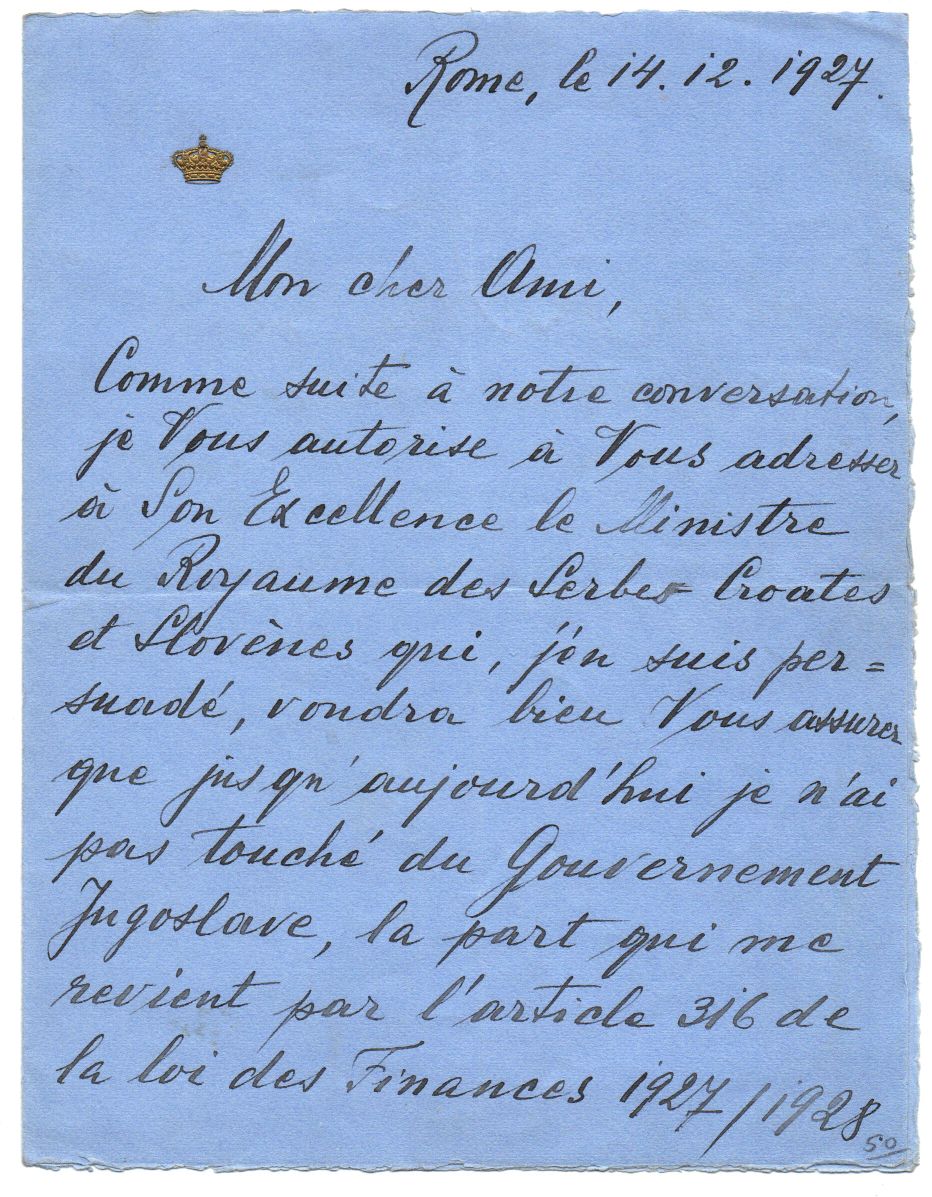 Rome, le 14.12.1927.
Mon cher Ami,
Comme suite à notre conversation,
je Vous autorise à Vous adresser
à Son Excellence le Ministre
du Royaume des Serbes Croates
et Slovènes qui, j'en suis per=
suadé, voudra bien Vous assurer
que jusqu'aujourd'hui je n'ai
pas touché du Gouvernement
Jugoslave, la part qui me
revient par l'article 316 de
la loi des Finances 1927/1928
50